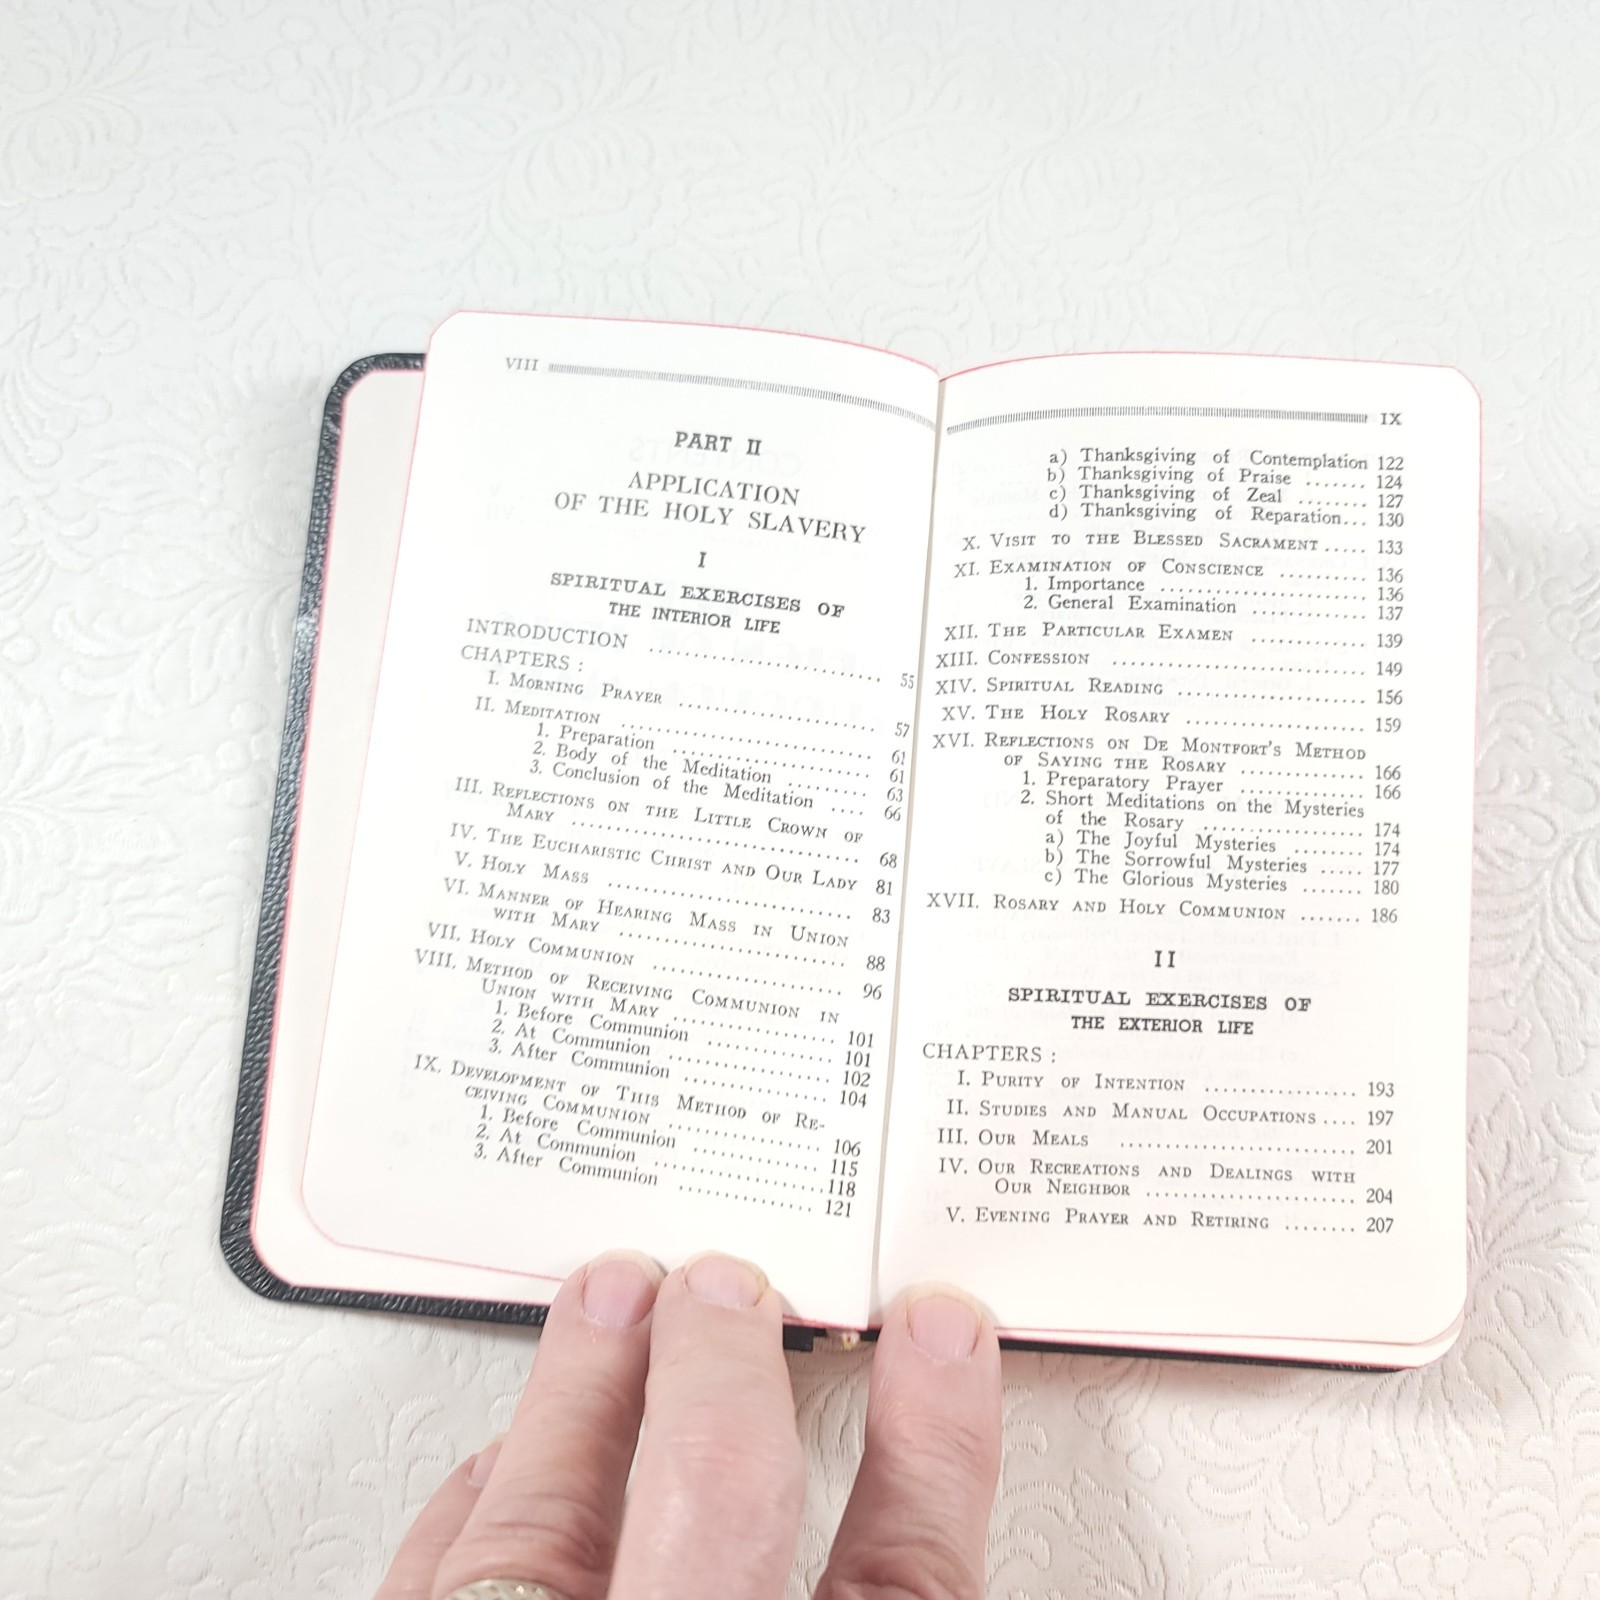 VIII
PART II
APPLICATION
OF THE HOLY SLAVERY
I
SPIRITUAL EXERCISES OF
THE INTERIOR LIFE
INTRODUCTION ........................ 55
CHAPTERS :
I. MORNING PRAYER .................... 57
II. MEDITATION .......................... 61
1. Preparation .................... 61
2. Body of the Meditation ......... 63
3. Conclusion of the Meditation .... 66
III. REFLECTIONS ON THE LITTLE CROWN OF
MARY ............................. 68
IV. THE EUCHARISTIC CHRIST AND OUR LADY 81
V. HOLY MASS ......................... 83
VI. MANNER OF HEARING MASS IN UNION
WITH MARY ........................ 88
VII. HOLY COMMUNION .................... 96
VIII. METHOD OF RECEIVING COMMUNION IN
UNION WITH MARY ................. 101
1. Before Communion .............. 101
2. At Communion .................. 102
3. After Communion ............... 104
IX. DEVELOPMENT OF THIS METHOD OF RE-
CEIVING COMMUNION ................ 106
1. Before Communion .............. 115
2. At Communion .................. 118
3. After Communion ............... 121
IX
a) Thanksgiving of Contemplation 122
b) Thanksgiving of Praise ....... 124
c) Thanksgiving of Zeal ........ 127
d) Thanksgiving of Reparation... 130
X. VISIT TO THE BLESSED SACRAMENT ..... 133
XI. EXAMINATION OF CONSCIENCE .......... 136
1. Importance ........................ 136
2. General Examination ............. 137
XII. THE PARTICULAR EXAMEN ............ 139
XIII. CONFESSION .......................... 149
XIV. SPIRITUAL READING .................. 156
XV. THE HOLY ROSARY ................... 159
XVI. REFLECTIONS ON DE MONTFORT'S METHOD
OF SAYING THE ROSARY ............. 166
1. Preparatory Prayer ............. 166
2. Short Meditations on the Mysteries
of the Rosary .................. 174
a) The Joyful Mysteries ........ 174
b) The Sorrowful Mysteries ..... 177
c) The Glorious Mysteries ....... 180
XVII. ROSARY AND HOLY COMMUNION ....... 186
II
SPIRITUAL EXERCISES OF
THE EXTERIOR LIFE
CHAPTERS :
I. PURITY OF INTENTION ................ 193
II. STUDIES AND MANUAL OCCUPATIONS .... 197
III. OUR MEALS ......................... 201
IV. OUR RECREATIONS AND DEALINGS WITH
OUR NEIGHBOR ...................... 204
V. EVENING PRAYER AND RETIRING ........ 207